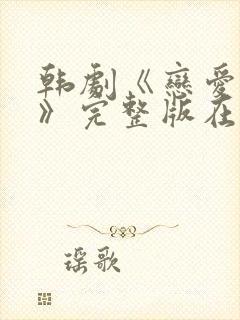 韩劇《戀愛
》完整版在
瑶歌